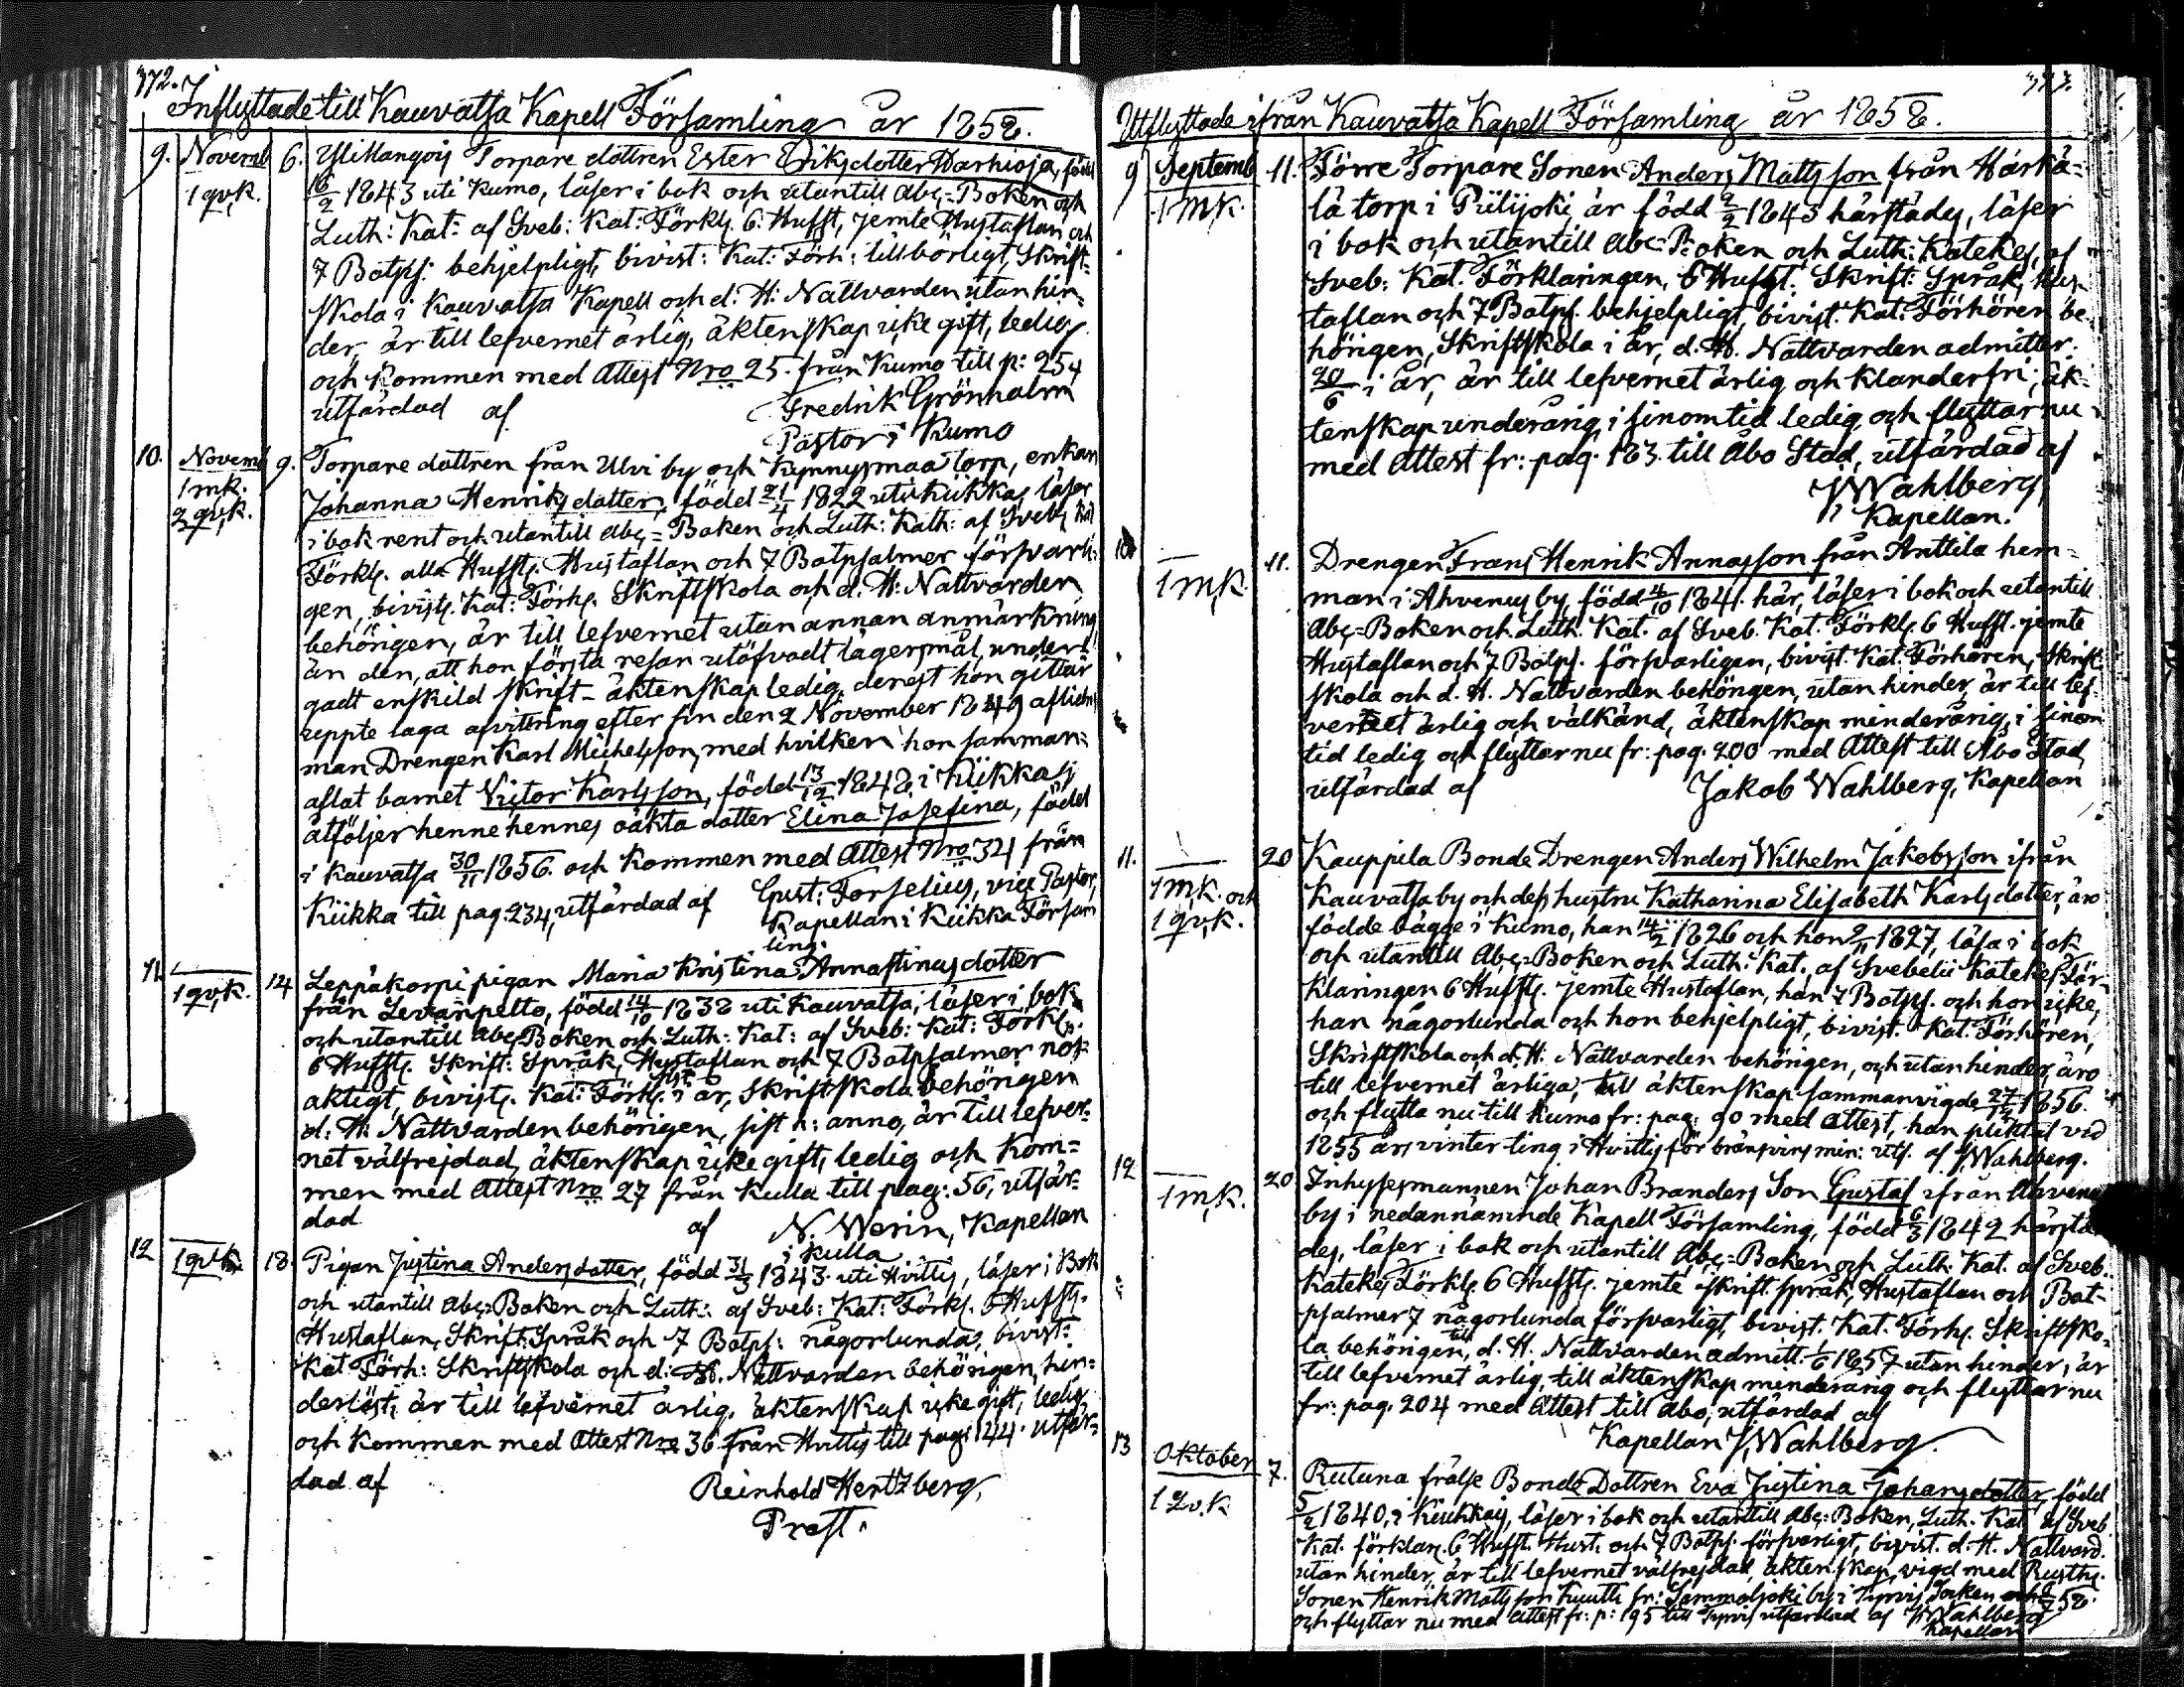 372.
Inflyttade till Kauvatsa Kapell Församling år 1858.
9. Novemb 6. Ylistangois Torpare dottren Ester Eriksdotter Harhioja, född
1 qv,k. 16/2 1843 uti Kumo, läser i bok och utantill abc,=Boken och
Luth: Kat: af Sveb: Kat: Förkl. 6. Hufst, jemte Hustaflan och
7 Botps: behjelpligt, bivist: Kat: Förh: tillbörligt, Skrift=
skola i Kauvatsa Kapell och d: H: Nattvarden utan hin=
der, är till lefvernet ärlig, äktenskap icke gift, ledig
och kommen med Attest Nro 25. från Kumo till p: 254
utfärdad af Fredrik Grönholm
Pastor i Kumo
10. Novemb 9. Torpare dottren från Ulvi by och Kynnysmaa torp, enkan
1 mk. Johanna Henriksdotter, född 21/4 1822 uti Kiikka, läser
2 qv,k. i bok rent och utantill abc,=Boken och Luth: Kath: af Sveb, Kat
Förkl. alla Hufst, Hustaflan och 7 Botpsalmer försvarli=
gen, bivist, Kat: Förh, Skriftskola och d. H: Nattvarden
behörigen, är till lefvernet utan annan anmärkning
än den, att hon första resan utöfvadt lägersmål, under=
gadt enskild skrift_ äktenskap ledig, derest hon gittar
uppte laga afvittring efter sin den 2 November 1849 aflidne
man Drengen Karl Michelsson, med hvilken hon samman=
aflat barnet Victor Karlsson, född 13/12 1848, i Kiikka,
åtföljer henne hennes oäkta dotter Elina Josefina, född
i Kauvatsa 30/11 1856. och kommen med Attest Nro 34 från
Kiikka till pag: 234, utfärdad af Gust: Forselius, vice Pastor,
Kapellan i Kiikka Försam
ling.
11. 14 Leppäkorpi pigan Maria Kristina Annastinasdotter
1 qv,k. från Levänpelto, född 14/10 1838 uti Kauvatsa, läser i bok
och utantill abc,Boken och Luth: Kat: af Sveb: Kat: Förkl,
6 Hufst, Skrift: Språk, Hustaflan och 7 Botpsalmer nöj=
aktigt, bivist, Kat: Förh, i år, Skriftskola behörigen
d: H: Nattvarden behörigen, sist h: anno, är till lefver=
net välfrejdad, äktenskap icke gift, ledig och kom=
men med Attest Nro 27 från Kulla till pag: 56, utfär=
dad af N. Werin, Kapellan
i Kulla
12 18. Pigan Justina Andersdotter, född 31/3 1843. uti Hvittis, läser i Bok
1 qv,k. och utantill abc,=Boken och Luth: af Sveb: Kat: Förkl. 6 Hufst,
Hustaflan, Skrift: Språk och 7 Botps: någorlunda, bivist:
Kat. Förh: Skriftskola och d: H. Nattvarden behörigen, hin=
derlöst, är till lefvernet ärlig, äktenskap icke gift, ledig
och kommen med Attest Nro 36. från Hvittis till pag: 144. utfär=
dad af Reinhold Hertzberg,
Prost.
373.
Utflyttade ifrån Kauvatsa Kapell Församling år 1858.
9 Septemb 11. Förre Torpare Sonen Anders Mattsson från Härkä=
1 mk. lä torp i Piilijoki, är född 2/2 1843 härstädes, läser
i bok och utantill Abc=Boken och Luth: Katekes, af
Sveb: Kat. Förklaringen, 6 Hufst. Skrift: Språk, Hus
taflan och 7 Botps. behjelpligt, bivist. Kat: Förhören be
hörigen, Skriftskola i år, d. H. Nattvarden admitter.
20/6 i år, är till lefvernet ärlig och klanderfri, äk=
tenskap underårig, i sinom tid ledig och flyttar nu
med Attest fr: pag. 183. till Åbo Stad, utfärdad af
J Wahlberg,
Kapellan.
10 11. Drengen Frans Henrik Annasson från Anttila hem=
1 mk. man i Ahvenus by, född 4/10 1841. här, läser i bok och utantill
Abc,=Boken och Luth. Kat. af Sveb. Kat. Förkl. 6 Hufst. jemte
Hustaflan och 7 Botps. försvarligen, bivist. Kat. Förhören, Skrift
skola och d. H. Nattvarden behörigen, utan hinder, är till lef
vernet ärlig och välkänd, äktenskap minderårig, i sinom
tid ledig och flyttar nu fr: pag. 200 med Attest till Åbo Stad,
utfärdad af Jakob Wahlberg, Kapellan
11. 20 Kauppila Bonde Drengen Anders Wilhelm Jakobsson ifrån
1 mk. och Kauvatsa by och dess hustru Katharina Elisabeth Karlsdotter, äro
1 qv,k. födde bägge i Kumo, han 14/2 1826 och hon 2/11 1827, läsa i bok
och utantill Abc,=Boken och Luth: Kat. af Svebelii Katekes För=
klaringen 6 Hufst, jemte Hustaflan, han 7 Botps. och hon icke,
han någorlunda och hon behjelpligt, bivist. Kat. Förhören,
Skriftskola och d. H. Nattvarden behörigen, och utan hinder, äro
till lefvernet ärliga, till äktenskap sammanvigde 27/12 1856.
och flytta nu till Kumo fr: pag: 90 med Attest, han pliktat vid
1855 års vinter ting i Hvittis för bränvins min: utf. af J Wahlberg.
12 20 Inhysesmannen Johan Branders Son Gustaf ifrån Ahvenus
1 m,k. by i nedannämnde Kapell Församling, född 6/3 1842 härstä
des, läser i bok och utantill Abc,=Boken och Luth. Kat. af Sveb.
Katekes Förkl. 6 Hufst, jemte skrift. språk, Hustaflan och Bot=
psalmer 7 någorlunda försvarligt, bivist. Kat. Förh. Skriftsko=
la behörigen, till d. H. Nattvarden admitt. 1/6 1857 utan hinder, är
till lefvernet ärlig, till äktenskap minderårig och flyttar nu
fr: pag. 204 med Attest till Åbo, utfärdad af
Kapellan J, Wahlberg.
13 Oktober 7. Rutuna frälse Bonde Dottren Eva Justina Johansdotter, född
1 qv.k 5/2 1840, i Keuhkois, läser i bok och utantill Abc,=Boken, Luth. Kat. af Sveb.
Kat. förklar. 6 Hufst. Hust. och 7 Botps. försvarligt, bivist. d. H. Nattvard.
utan hinder, är till lefvernet välfrejdad, äktenskap, vigd med Rusth.
Sonen Henrik Mattsson Knutti fr: Sammaljoki by i Tyrvis Socken
och flyttar nu med Attest fr: p: 195 till Tyrvis utfärdad af J Wahlberg
Kapellan